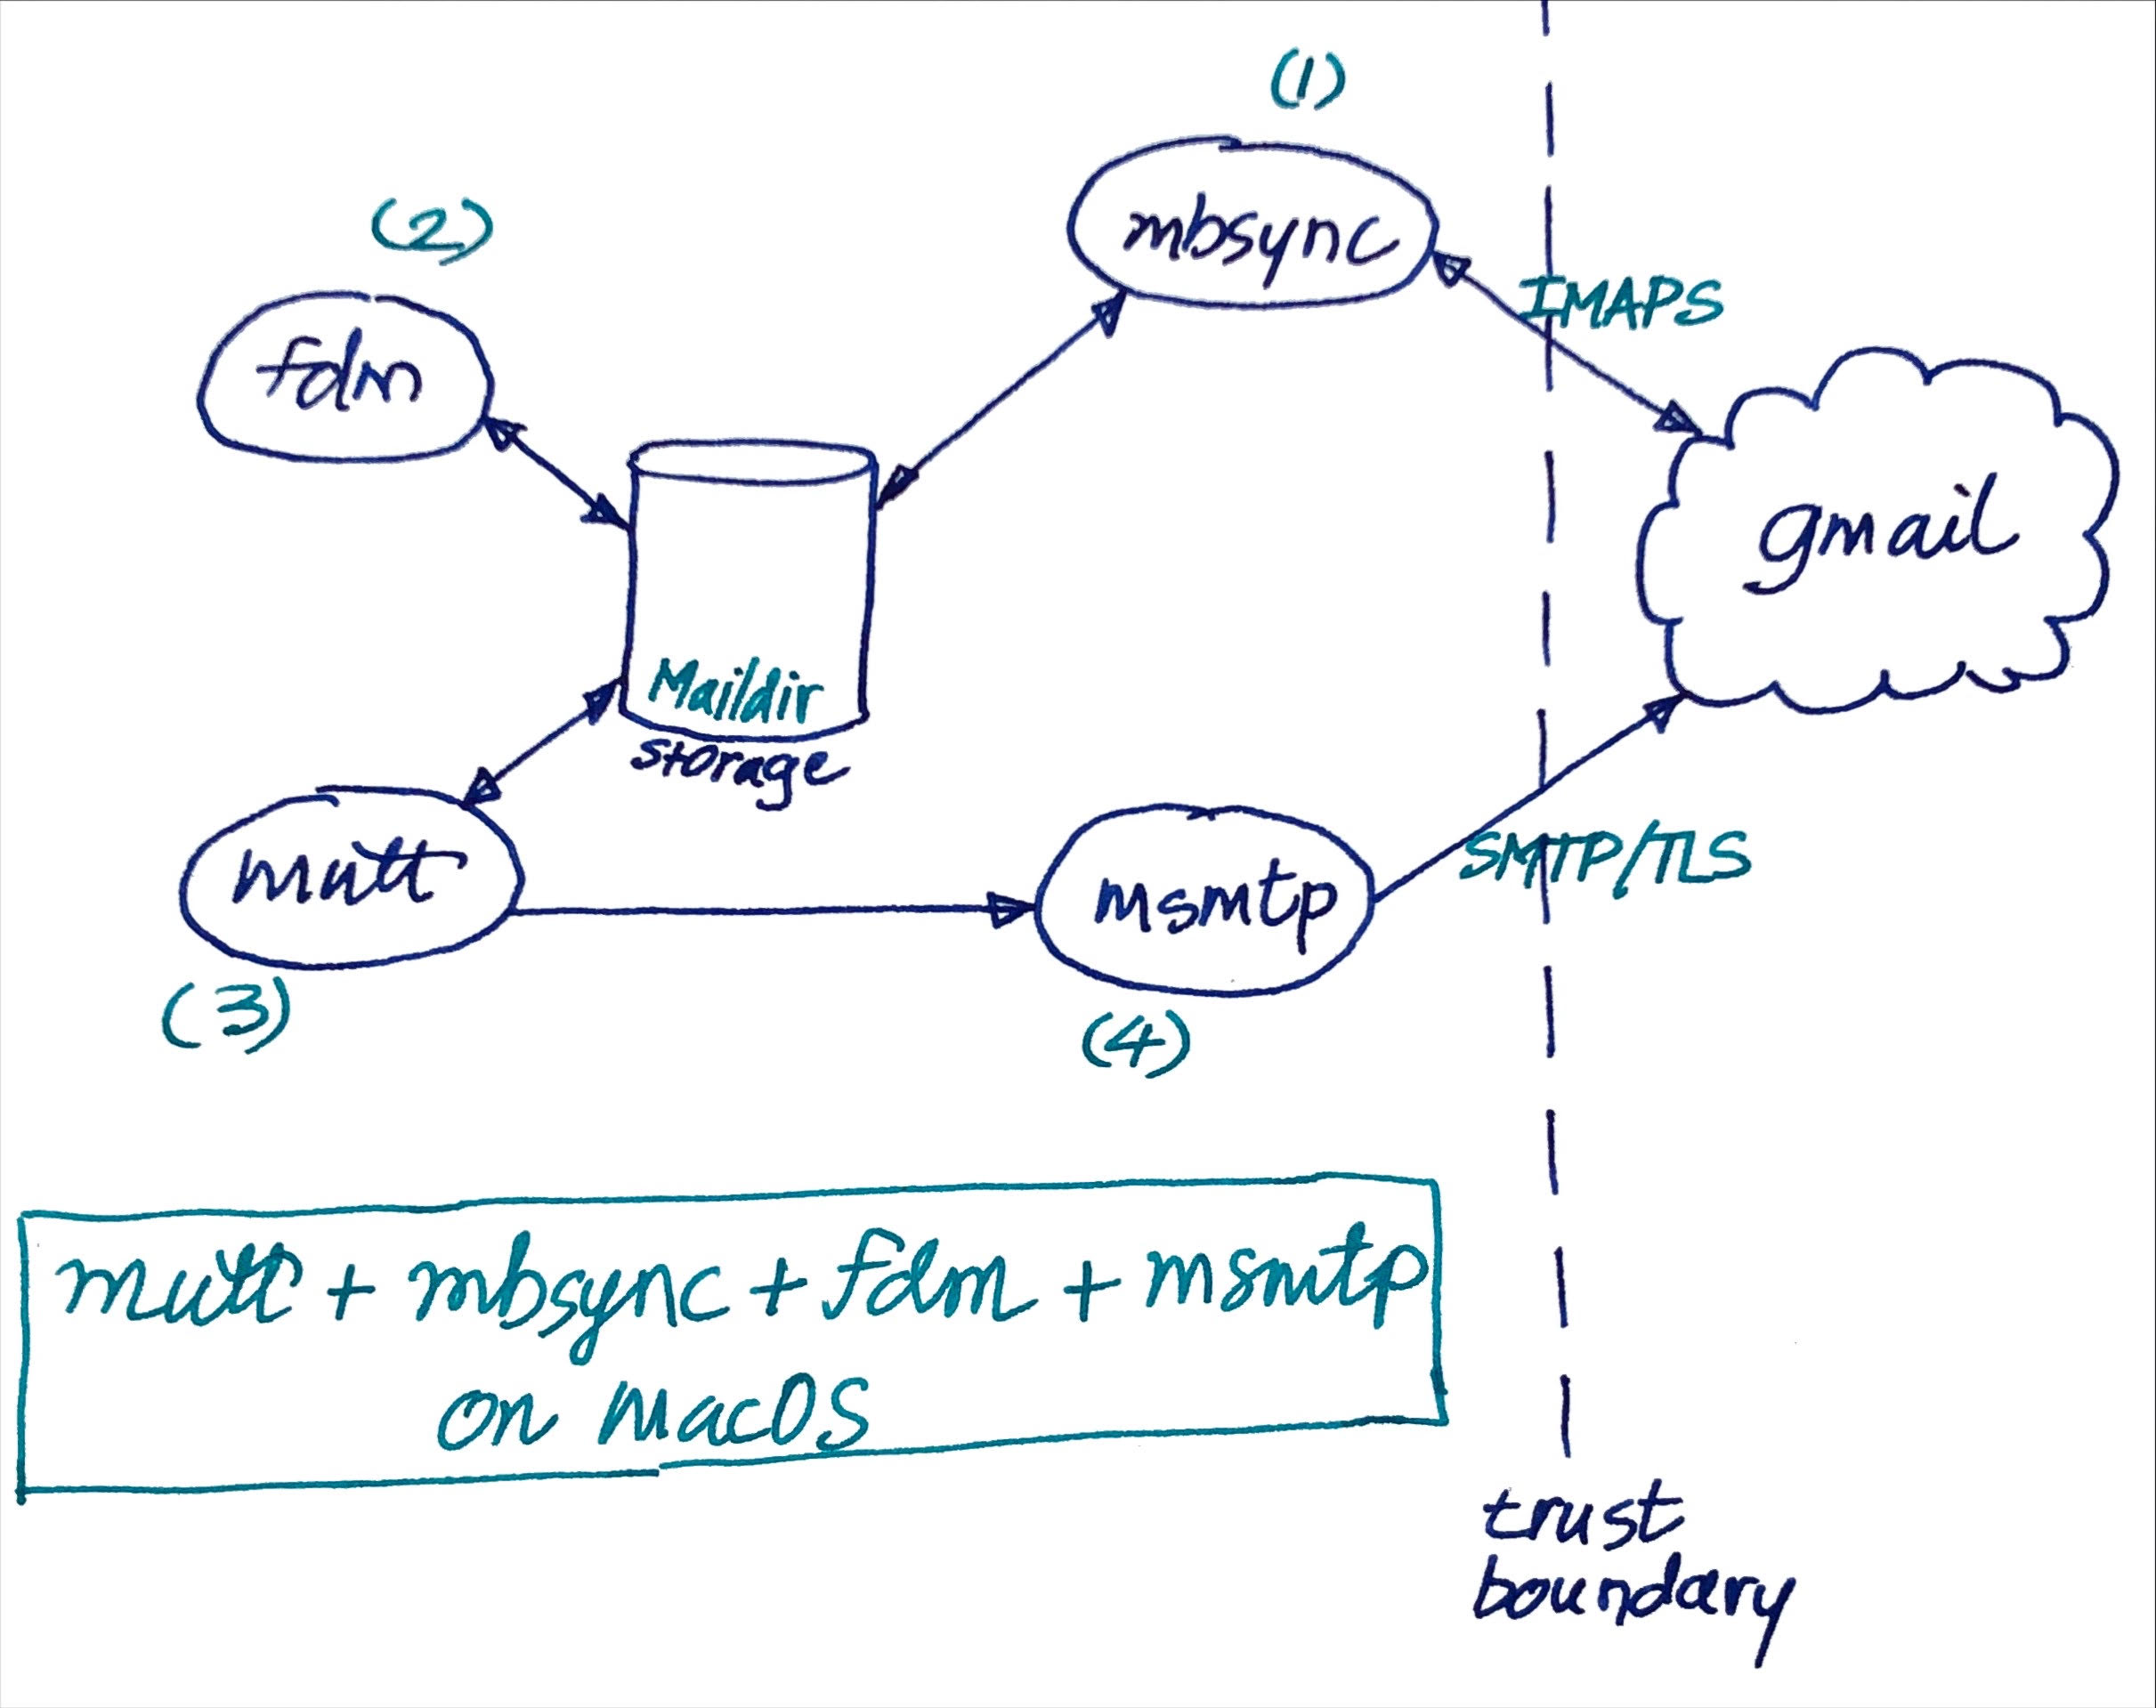 (1)
(2)
mbsync
IMAPS
fdm
gmail
Maildir
storage
mutt
msmtp
SMTP/TLS
(3)
(4)
mutt + mbsync + fdm + msmtp
on MacOS
trust
boundary